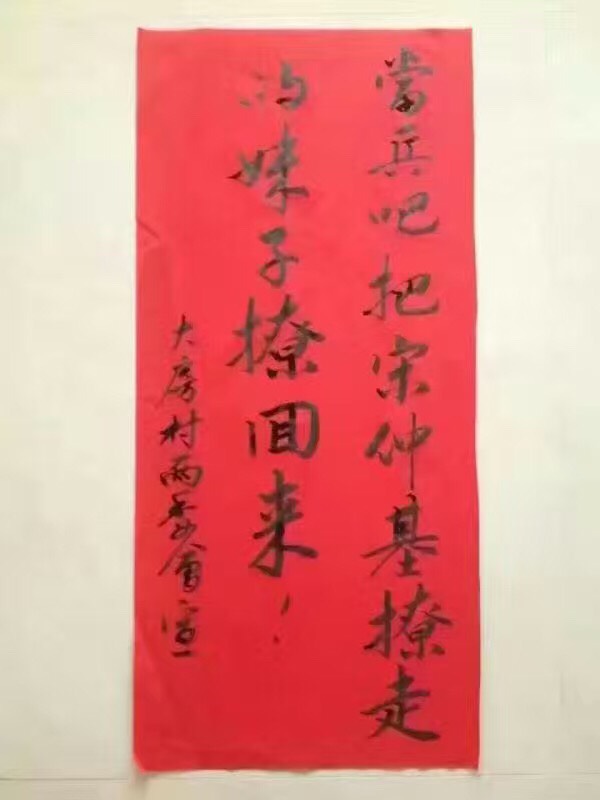 當兵吧把宋仲基撩走
的妹子撩回来！
大房村两委會宣